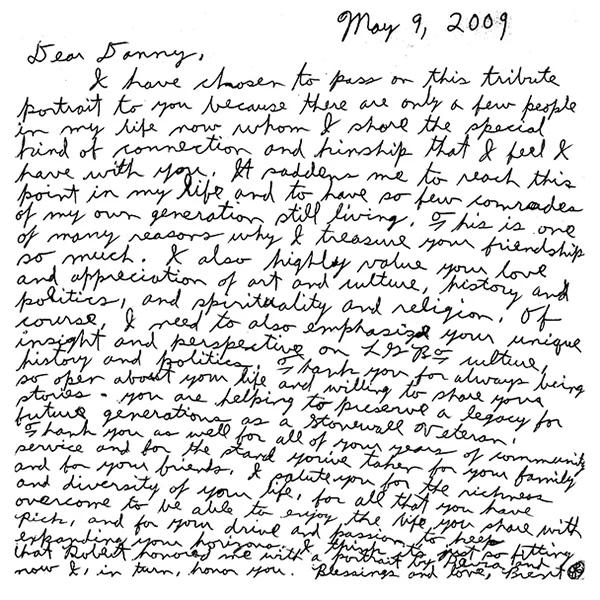 May 9, 2009
Dear Danny,
I have chosen to pass on this tribute
portrait to you because there are only a few people
in my life now whom I share the special
kind of connection and kinship that I feel I
have with you. It saddens me to reach this
point in my life and to have so few comrades
of my own generation still living. This is one
of many reasons why I treasure your friendship
so much. I also highly value your love
and appreciation of art and culture, history and
politics, and spirituality and religion. Of
course, I need to also emphasise your unique
insight and perspective on LGBT culture,
history and politics. Thank you for always being
so open about your life and willing to share your
stories - you are helping to preserve a legacy for
future generations as a Stonewall Veteran.
Thank you as well for all of your years of community
service and for the stand you've taken for your family
and for your friends. I salute you for the richness
and diversity of your life, for all that you have
overcome to be able to enjoy the life you share with
Rick, and for your drive and passion to keep
expanding your horizons. I think it's just so fitting
that Robert honored me with a portrait by and
now I, in turn, honor you. Blessings and love, Brent